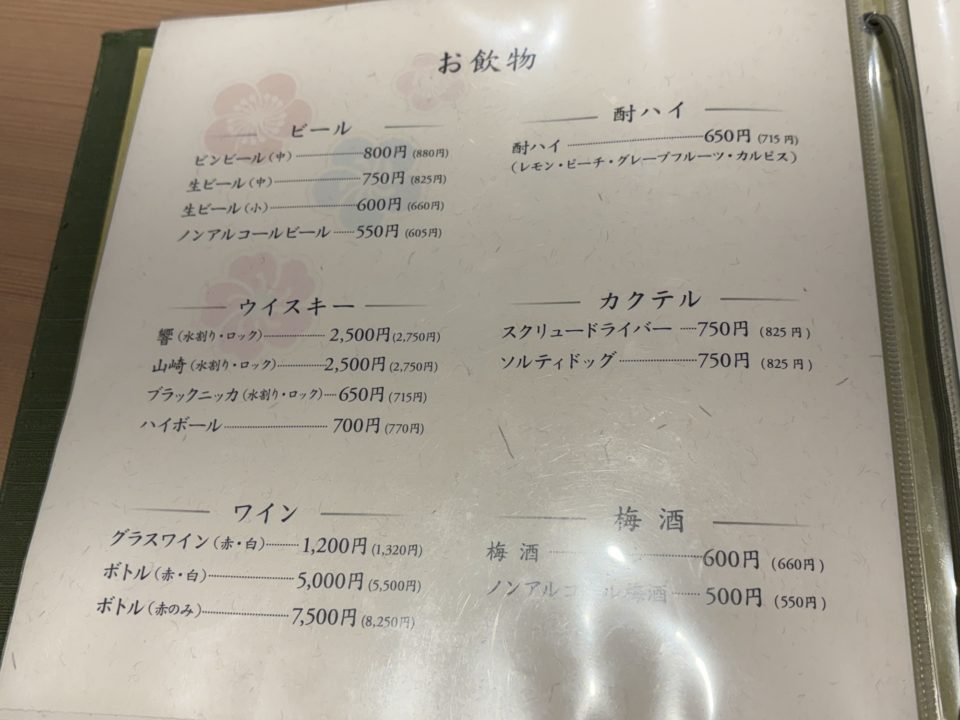 お飲物
ビール
ビンビール（中） 800円 (880円)
生ビール（中） 750円 (825円)
生ビール（小） 600円 (660円)
ノンアルコールビール 550円 (605円)
酎ハイ
酎ハイ 650円 (715円)
（レモン・ピーチ・グレープフルーツ・カルピス）
ウイスキー
響（水割り・ロック） 2,500円 (2,750円)
山崎（水割り・ロック） 2,500円 (2,750円)
ブラックニッカ（水割り・ロック） 650円 (715円)
ハイボール 700円 (770円)
カクテル
スクリュードライバー 750円 (825円)
ソルティドッグ 750円 (825円)
ワイン
グラスワイン（赤・白） 1,200円 (1,320円)
ボトル（赤・白） 5,000円 (5,500円)
ボトル（赤のみ） 7,500円 (8,250円)
梅酒
梅酒 600円 (660円)
ノンアルコール梅酒 500円 (550円)